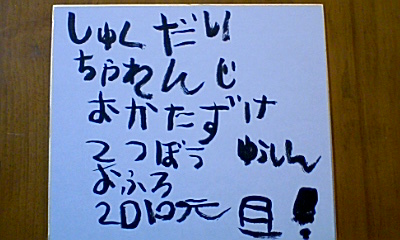 しゅくだい
ちゃれんじ
おかたずけ
てつぼう ゆうしん
おふろ
2010元旦!